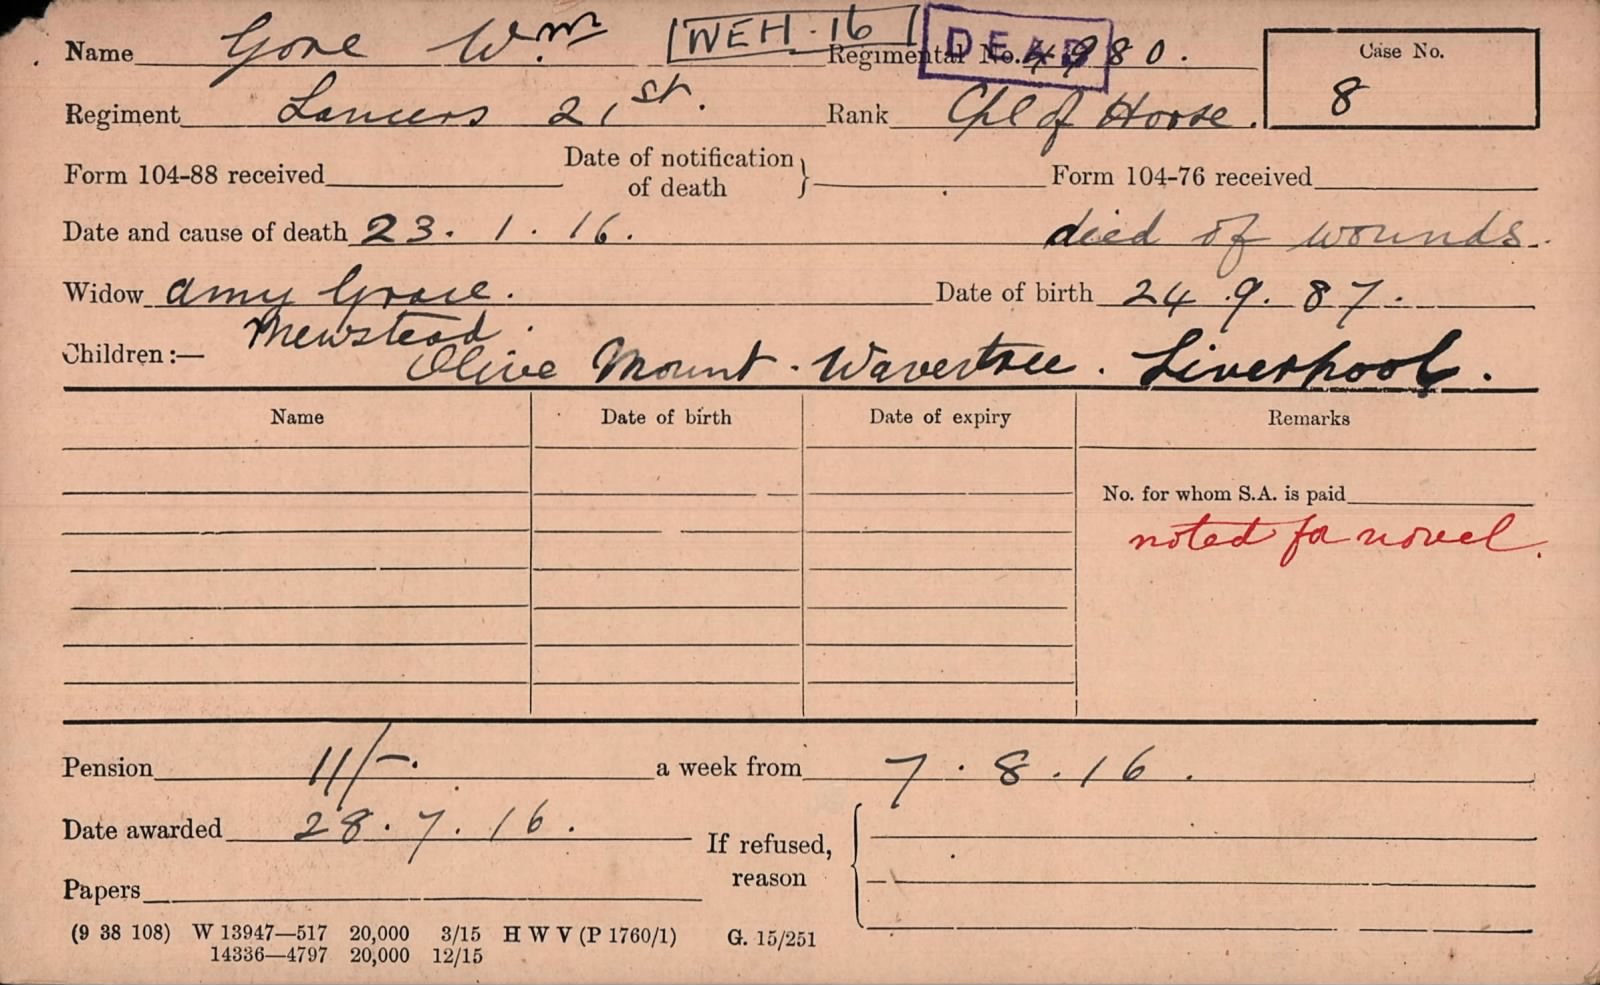 Name Gore Wm [WEH. 16] Regimental No. 4980. Case No.
DEAD
8
Regiment Lancers 21st. Rank Cpl of Horse.
Form 104-88 received Date of notification of death } Form 104-76 received
Date and cause of death 23. 1. 16. died of wounds.
Widow Amy Grace. Date of birth 24.9.87.
Mewstead.
Children:— Olive Mount. Wavertree. Liverpool.
Name Date of birth Date of expiry Remarks
No. for whom S.A. is paid
noted for novel.
Pension 11/-. a week from 7.8.16.
Date awarded 28.7.16. If refused, reason
Papers
(9 38 108) W 13947—517 20,000 3/15 H W V (P 1760/1) G. 15/251
14336—4797 20,000 12/15